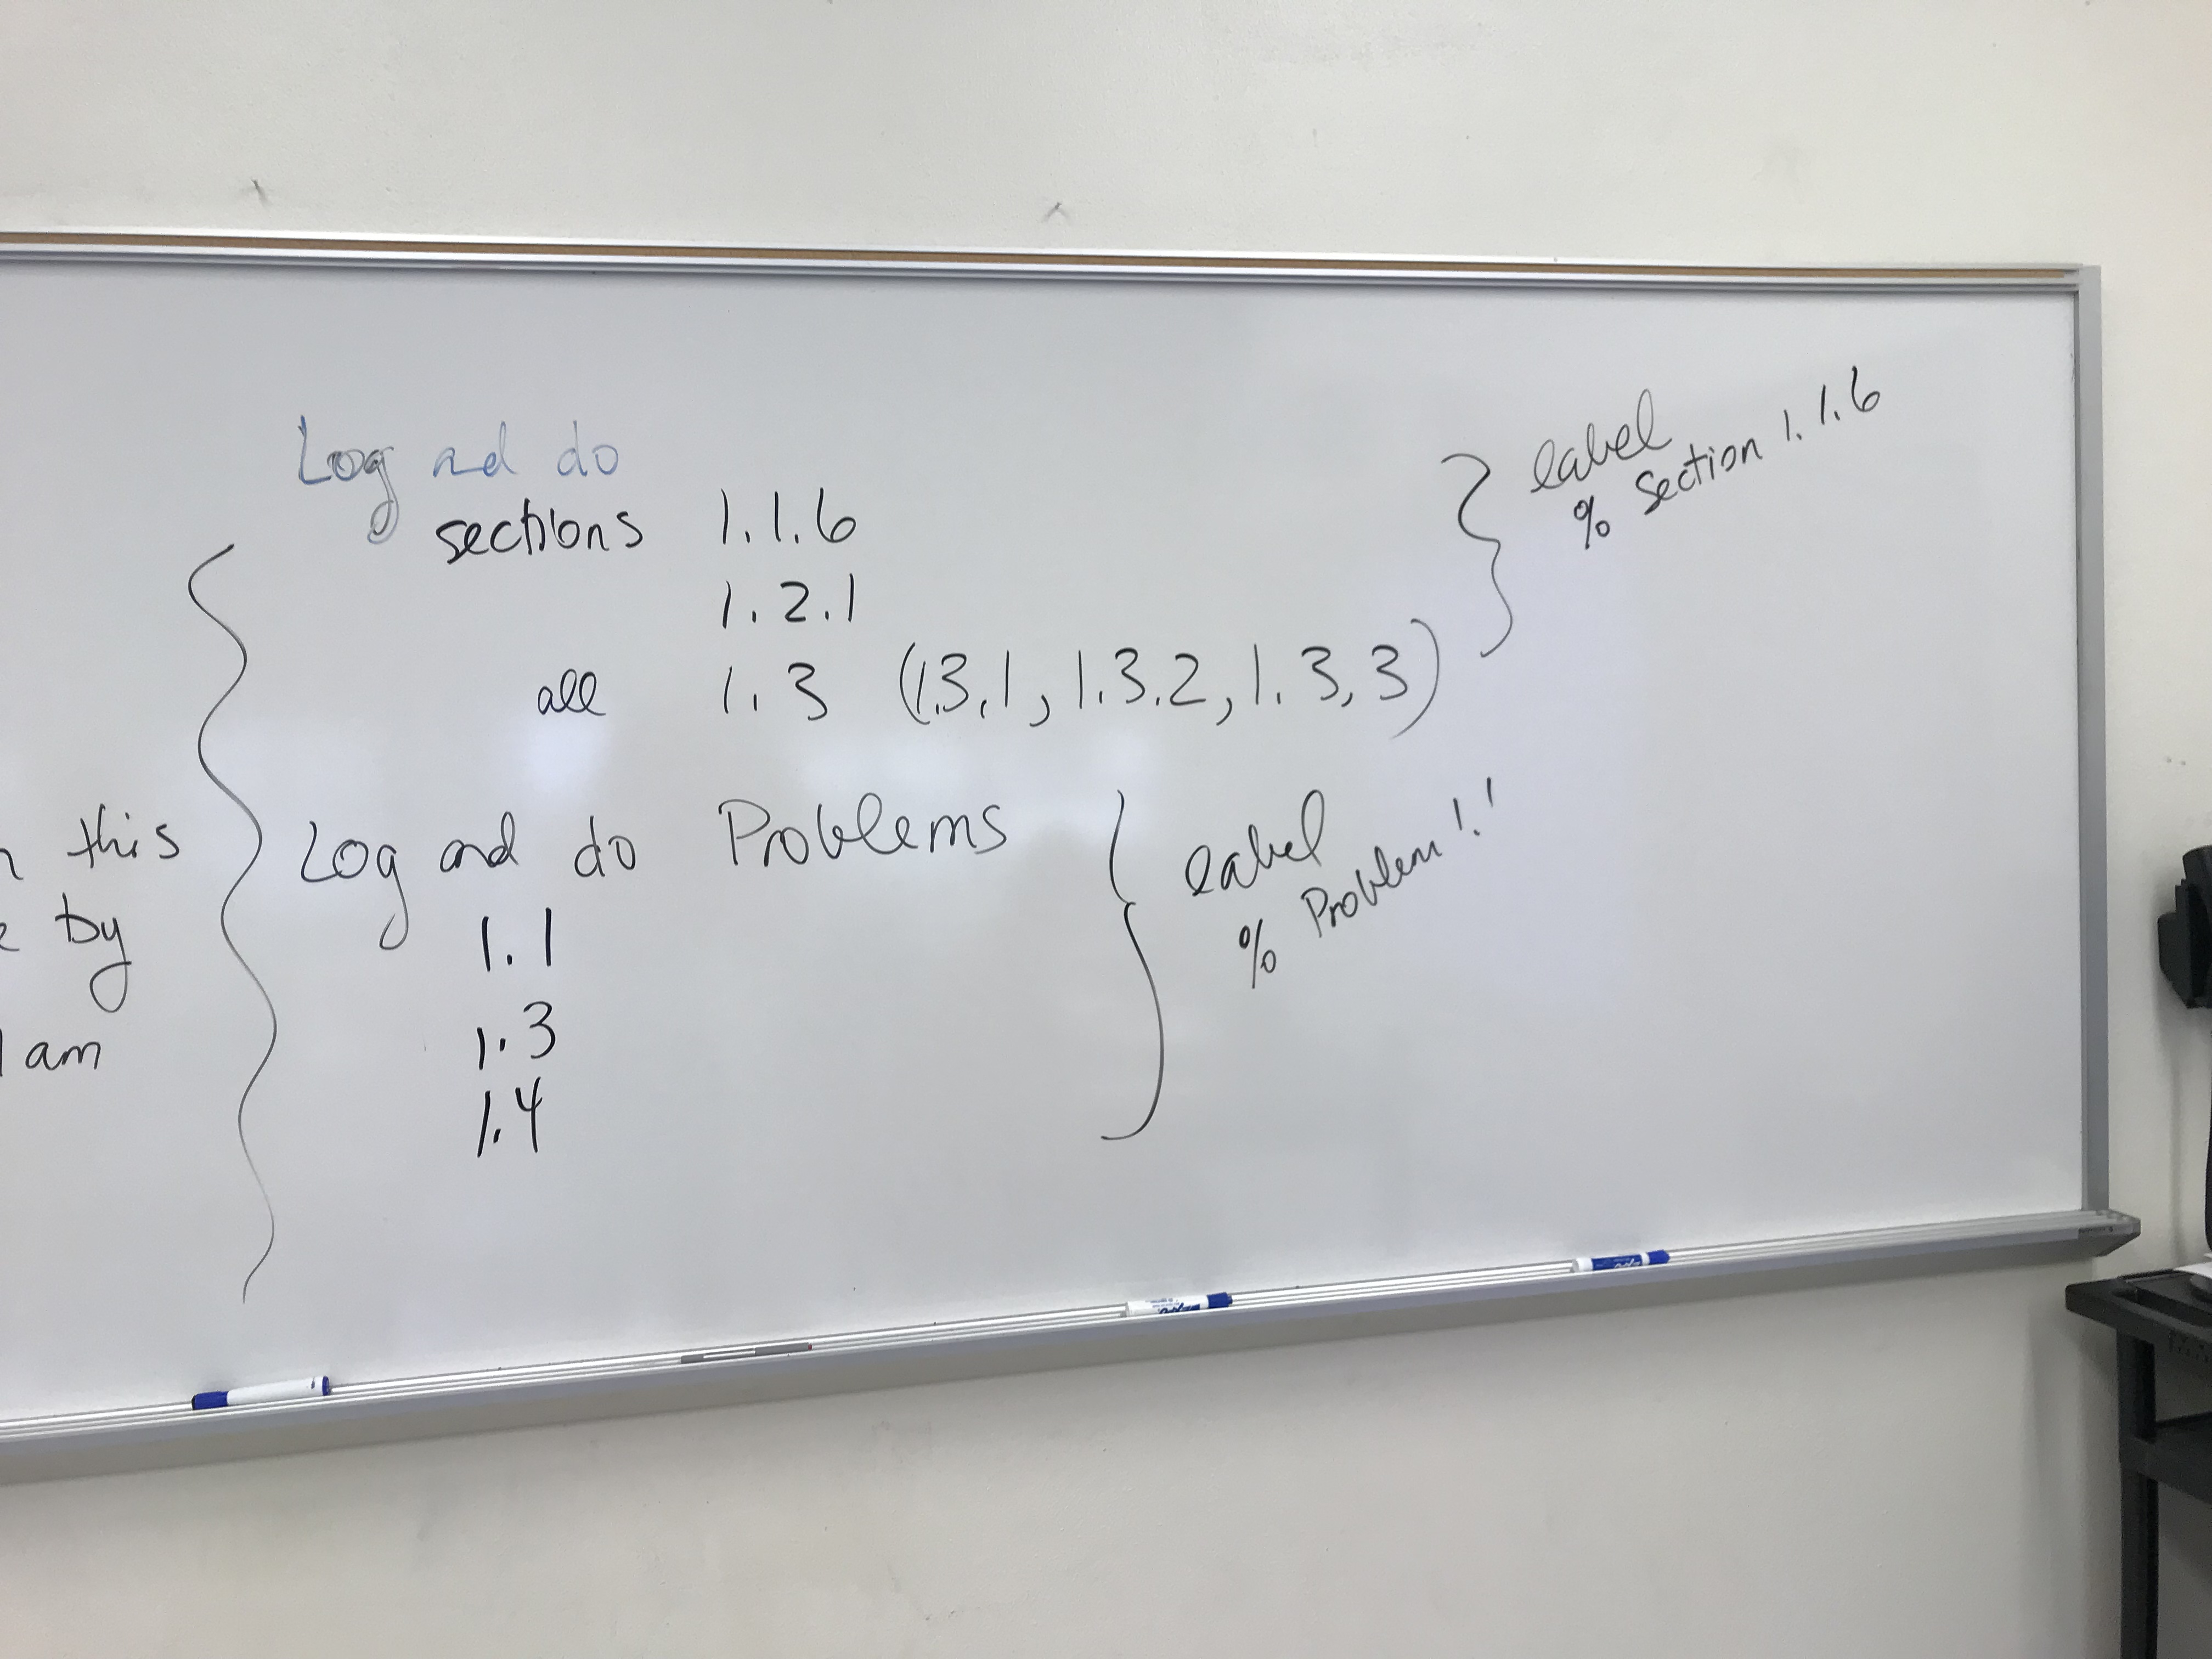 Log and do
sections 1.1.6
1.2.1
all 1.3 (1.3.1, 1.3.2, 1.3,3)
label
% Section 1.1.6
this
by
am
Log and do Problems
1.1
1.3
1.4
label
% Problem 1.1